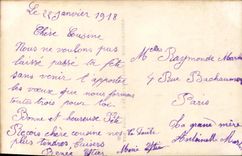 Le 28 janvier 1918
Chère Cousine
Nous ne voulons pas
laissé passé la fête
sans venir t'apporté
les vœux que nous formons
toutes trois pour toi
Bonne et heureuse Fête
Reçois chère cousine nos
plus tendres baisers
Renée
Marie
Melle Raymonde
4 Rue Bachaumont
Paris
La grand mère
Antoinette